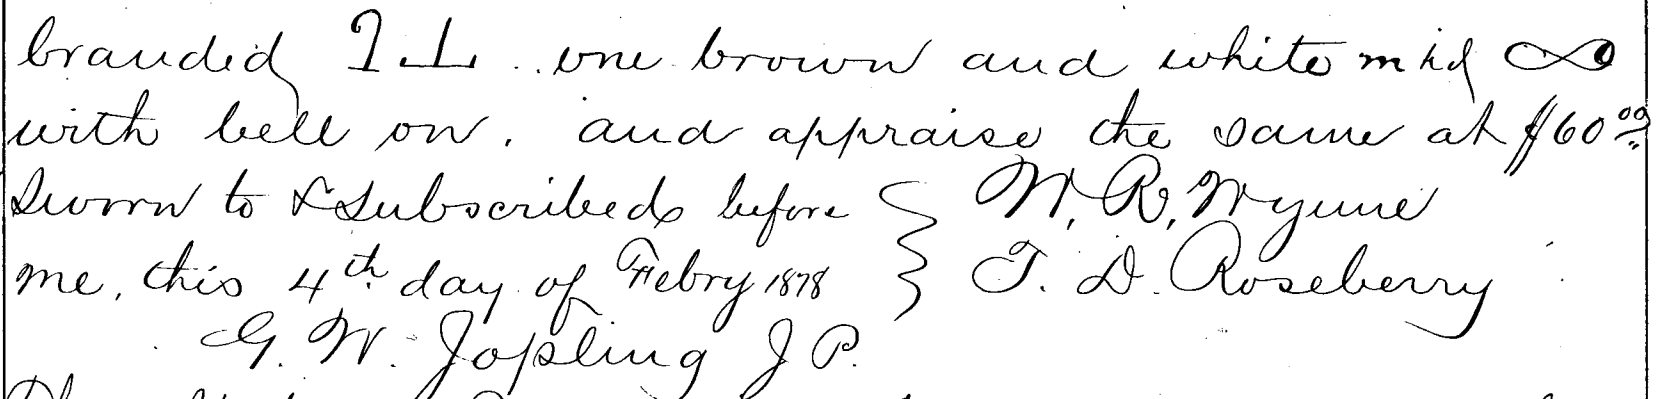 branded I.L. one brown and white mkd
with bell on. and appraise the same at $60.00
Sworn to & Subscribed before } W. R. Wynne
me, this 4th day of Febry 1878 } T. D. Roseberry
G. W. Jopling J P.